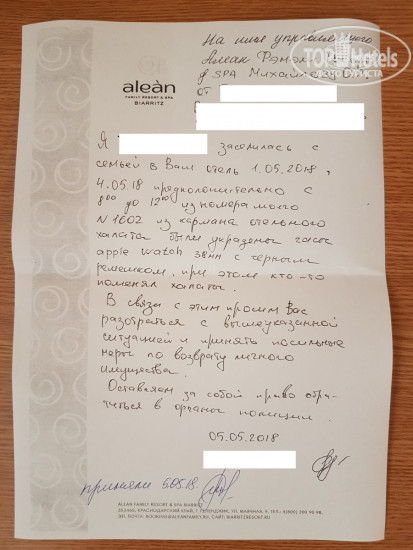 На имя управляющего
Алеан Фэмили
SPA Михайло
от
aleàn
FAMILY RESORT & SPA
BIARRITZ
TOPHotels
Я заселилась с
семьей в Ваш отель 1.05.2018,
4.05.18 предположительно с
8⁰⁰ до 12⁰⁰ из номера моего
N 1602 из кармана отельного
халата были украдены часы
apple watch 38мм с черным
ремешком, при этом кто-то
поменял халаты.
В связи с этим просим Вас
разобраться с вышеуказанной
ситуацией и принять посильные
меры по возврату личного
имущества.
Оставляем за собой право обра-
титься в органы полиции.
05.05.2018
приняли 5.05.18
ALEAN FAMILY RESORT & SPA BIARRITZ
353465, КРАСНОДАРСКИЙ КРАЙ, Г. ГЕЛЕНДЖИК, УЛ. МАЯЧНАЯ, 9. ТЕЛ.: 8(800) 200 90 98,
ЭЛ. ПОЧТА: BOOKING@ALEANFAMILY.RU, САЙТ: BIARRITZRESORT.RU